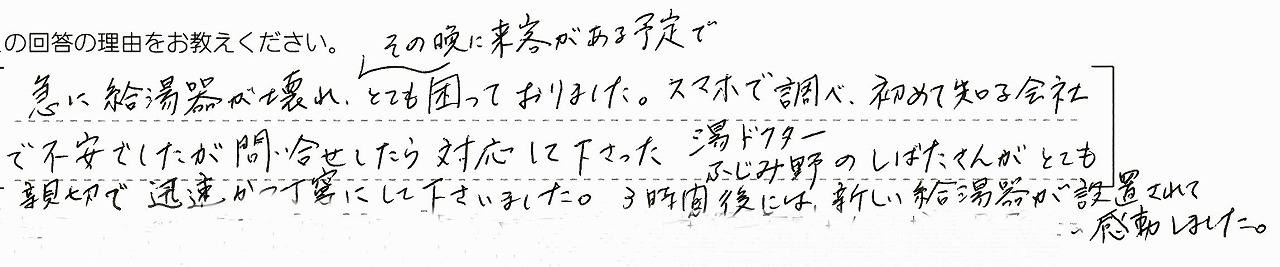 の回答の理由をお教えください。
その晩に来客がある予定で
急に給湯器が壊れ、とても困っておりました。スマホで調べ、初めて知る会社
で不安でしたが問い合せしたら対応して下さった
湯ドクター
ふじみ野のしばたさんがとても
親切で迅速かつ丁寧にして下さいました。3時間後には、新しい給湯器が設置されて
感動しました。